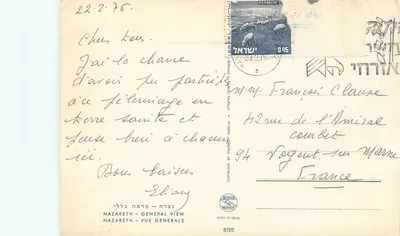 22.2.76.
Chers tous.
J'ai la chance
d'avoir pu participer
à ce pèlerinage en
terre sainte et
pense bien à chacun
ici.
Bons baisers
Eliane
נצרת - מראה כללי
NAZARETH - GENERAL VIEW
NAZARETH - VUE GENERALE
MADE IN ISRAEL
8701
HERMON
ישראל
ISRAEL
0.45
אזרחי
M M. François Clause
42 rue de l'Amiral
Courbet
94 Nogent sur Marne
France